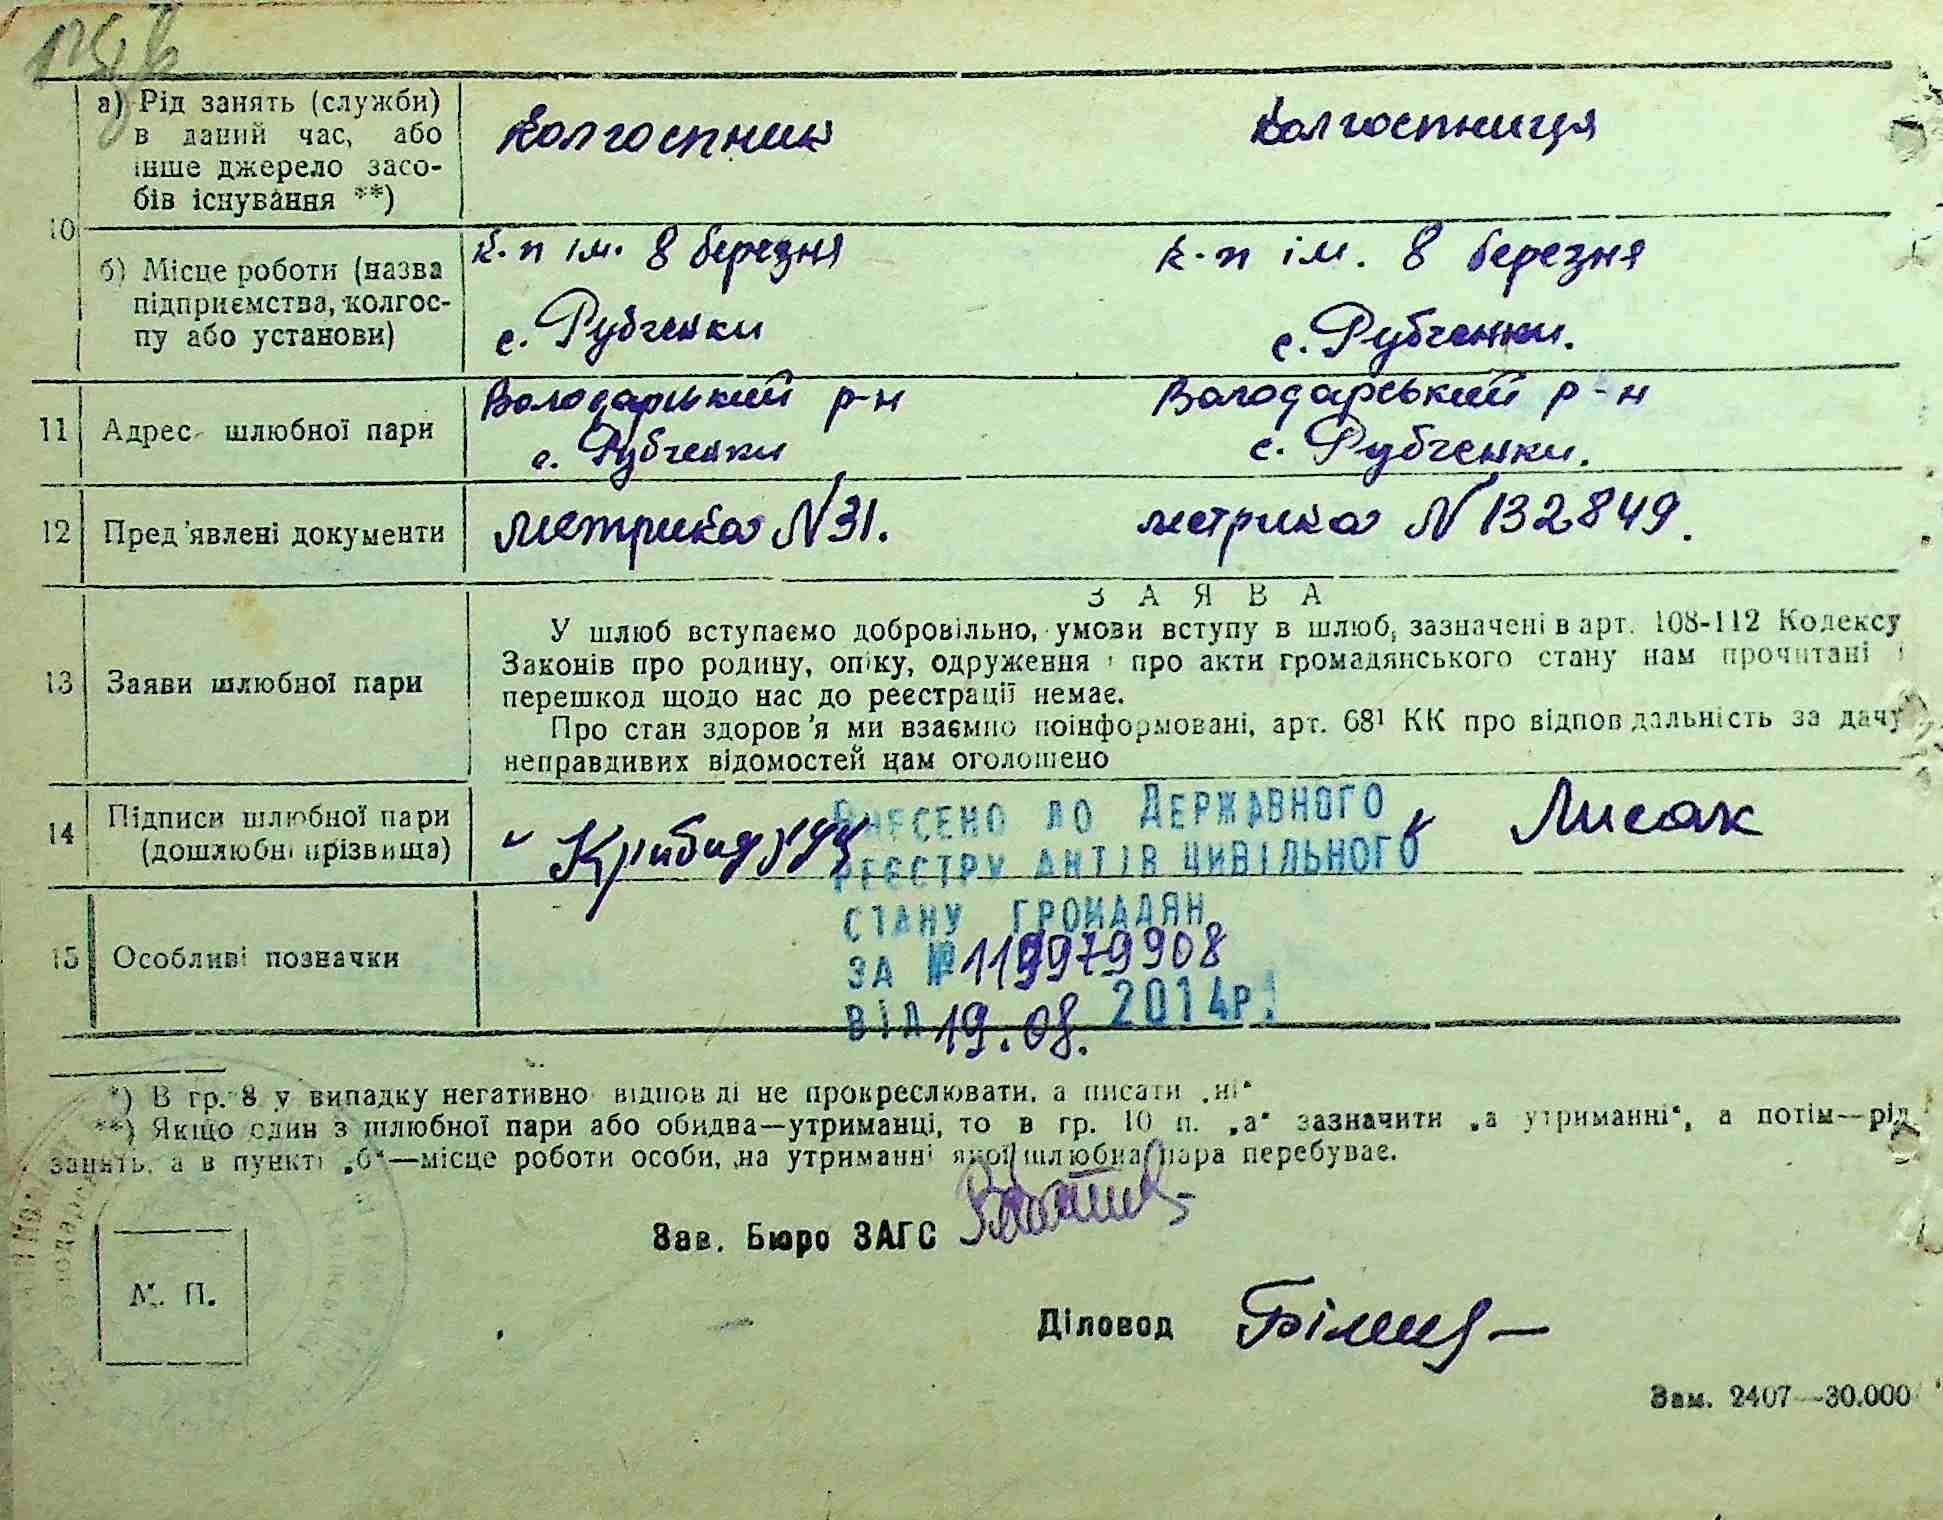 а) Рід занять (служби)
в даний час, або
інше джерело засо-
бів існування **)
Колгоспник
Колгоспниця
10
б) Місце роботи (назва
підприємства, колгос-
пу або установи)
к-п ім. 8 березня
с. Рубченки
к-п ім. 8 березня
с. Рубченки.
11
Адрес шлюбної пари
Володарський р-н
с. Рубченки
Володарський р-н
с. Рубченки.
12
Пред'явлені документи
метрика N 31.
метрика N 132849.
13
Заяви шлюбної пари
ЗАЯВА
У шлюб вступаємо добровільно, умови вступу в шлюб, зазначені в арт. 108-112 Кодексу
Законів про родину, опіку, одруження і про акти громадянського стану нам прочитані і
перешкод щодо нас до реєстрації немає.
Про стан здоров'я ми взаємно поінформовані, арт. 68¹ КК про відповідальність за дачу
неправдивих відомостей нам оголошено
14
Підписи шлюбної пари
(дошлюбні прізвища)
Лисак
ВНЕСЕНО ДО ДЕРЖАВНОГО
РЕЄСТРУ АКТІВ ЦИВІЛЬНОГО
СТАНУ ГРОМАДЯН
ЗА № 119979908
ВІД 19.08. 2014р.
15
Особливі позначки
*) В гр. 8 у випадку негативно відповіді не прокреслювати, а писати „ні“
**) Якщо один з шлюбної пари або обидва—утриманці, то в гр. 10 п. „а“ зазначити „а утриманні“, а потім—рід
занять, а в пункті „б“—місце роботи особи, на утриманні якої шлюбна пара перебуває.
Зав. Бюро ЗАГС
М. П.
Діловод
Зам. 2407—30.000